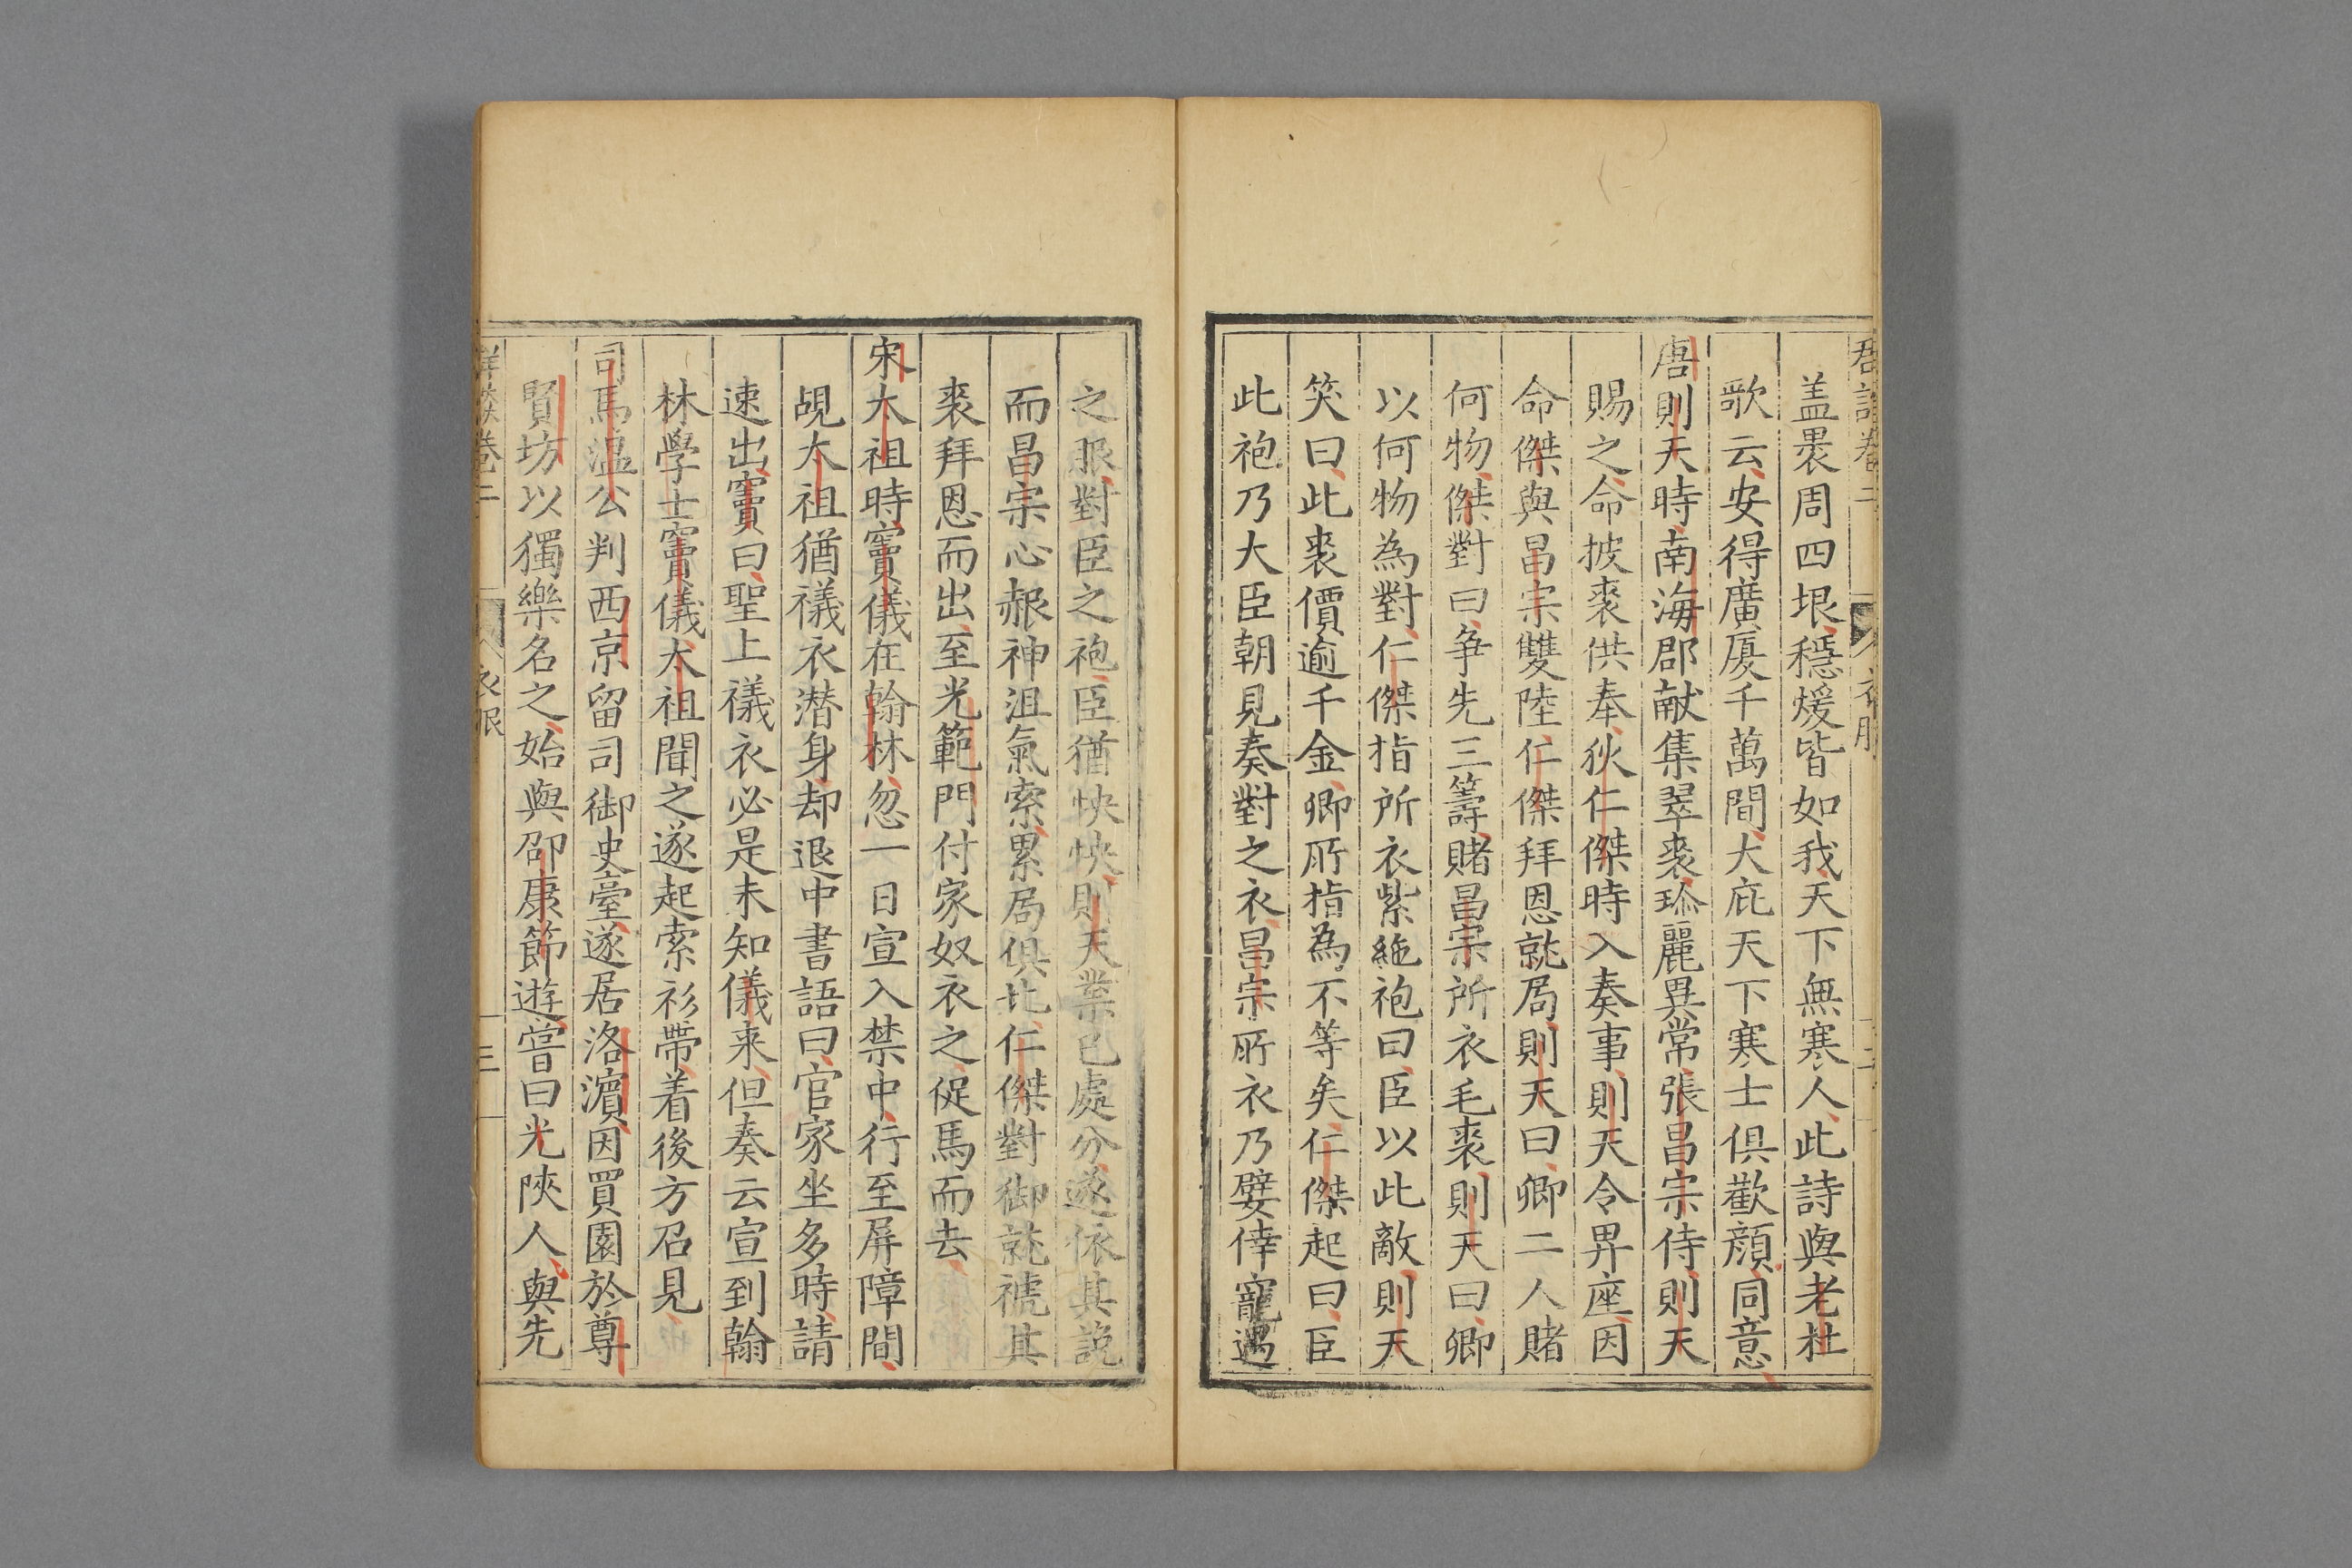 盖裏周四垠穩煖皆如我天下無寒人此詩與老杜
歌云安得廣厦千萬間大庇天下寒士俱歡顔同意
唐則天時南海郡献集翠裘珎麗異常張昌宗侍則天
賜之命披裘供奉狄仁傑時入奏事則天令畀座因
命傑與昌宗雙陸仁傑拜恩就局則天曰卿二人賭
何物傑對曰争先三籌賭昌宗所衣毛裘則天曰卿
以何物為對仁傑指所衣紫絁袍曰臣以此敵則天
笑曰此裘價逾千金卿所指為不等矣仁傑起曰臣
此袍乃大臣朝見奏對之衣昌宗所衣乃嬖倖寵遇
之服對臣之袍臣猶怏怏則天業已處分遂依其說
而昌宗心赧神沮氣索累局俱北仁傑對御就褫其
裘拜恩而出至光範門付家奴衣之促馬而去
宋太祖時竇儀在翰林忽一日宣入禁中行至屏障間
覘太祖猶䙚衣潜身却退中書語曰官家坐多時請
速出竇曰聖上䙚衣必是未知儀来但奏云宣到翰
林學士竇儀太祖聞之遂起索衫帶着後方召見
司馬溫公判西京留司御史臺遂居洛濵因買園於尊
賢坊以獨樂名之始與邵康節遊嘗曰光陝人與先
卷二
衣服
三